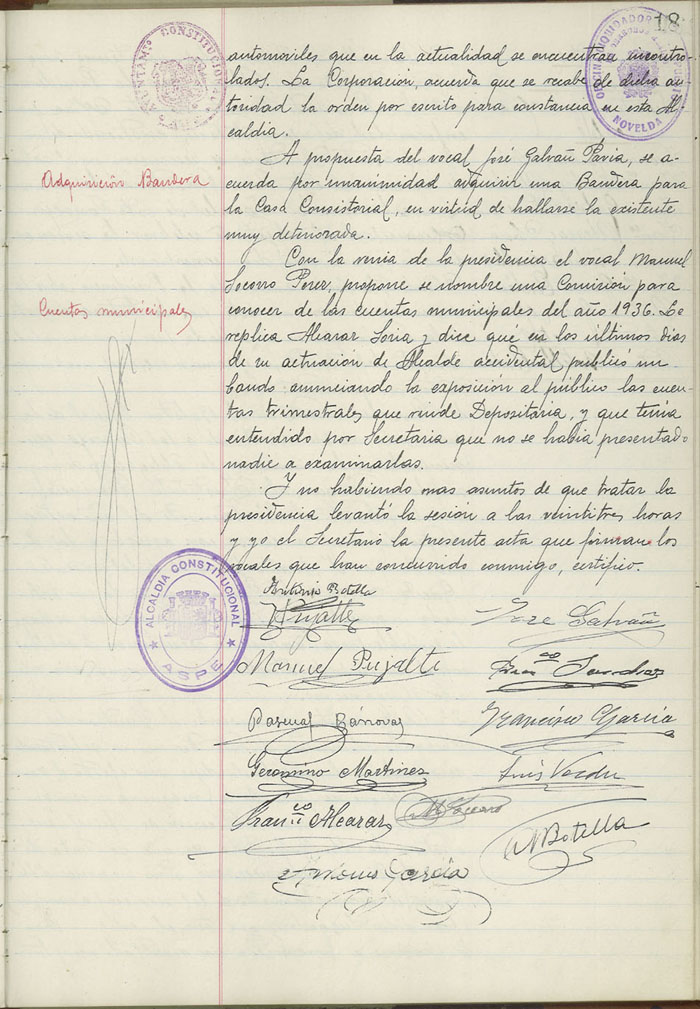 18
AYUNTAMTº CONSTITUCIONAL
NOVELDA
automoviles que en la actualidad se encuentran incontro-
lados. La Corporación, acuerda que se recabe de dicha au-
toridad la orden por escrito para constancia en esta Al-
caldia.
Adquisición Bandera
A propuesta del vocal José Galvañ Pavia, se a-
cuerda por unanimidad adquirir una Bandera para
la Casa Consistorial, en virtud de hallarse la existente
muy deteriorada.
Con la venia de la presidencia el vocal Manuel
Socorro Perez, propone se nombre una Comisión para
Cuentas municipales
conocer de las cuentas municipales del año 1936. Le
replica Alcaraz Soria y dice que en los últimos dias
de su actuación de Alcalde accidental publicó un
bando anunciando la exposición al público las cuen-
tas trimestrales que rinde Depositaria, y que tenia
entendido por Secretaria que no se habia presentado
nadie a examinarlas.
Y no habiendo mas asuntos de que tratar la
presidencia levantó la sesión a las veintitres horas
y yo el Secretario la presente acta que firman los
vocales que han concurrido conmigo, certifico.
ALCALDIA CONSTITUCIONAL
ASPE
Antonio Botella
Jose Galvañ
Manuel Pujalte
Pascual Bánovas
Francisco Garcia
Geronimo Martinez
Luis Verdu
Franco Alcaraz
M Socorro
M Botella
Garcia